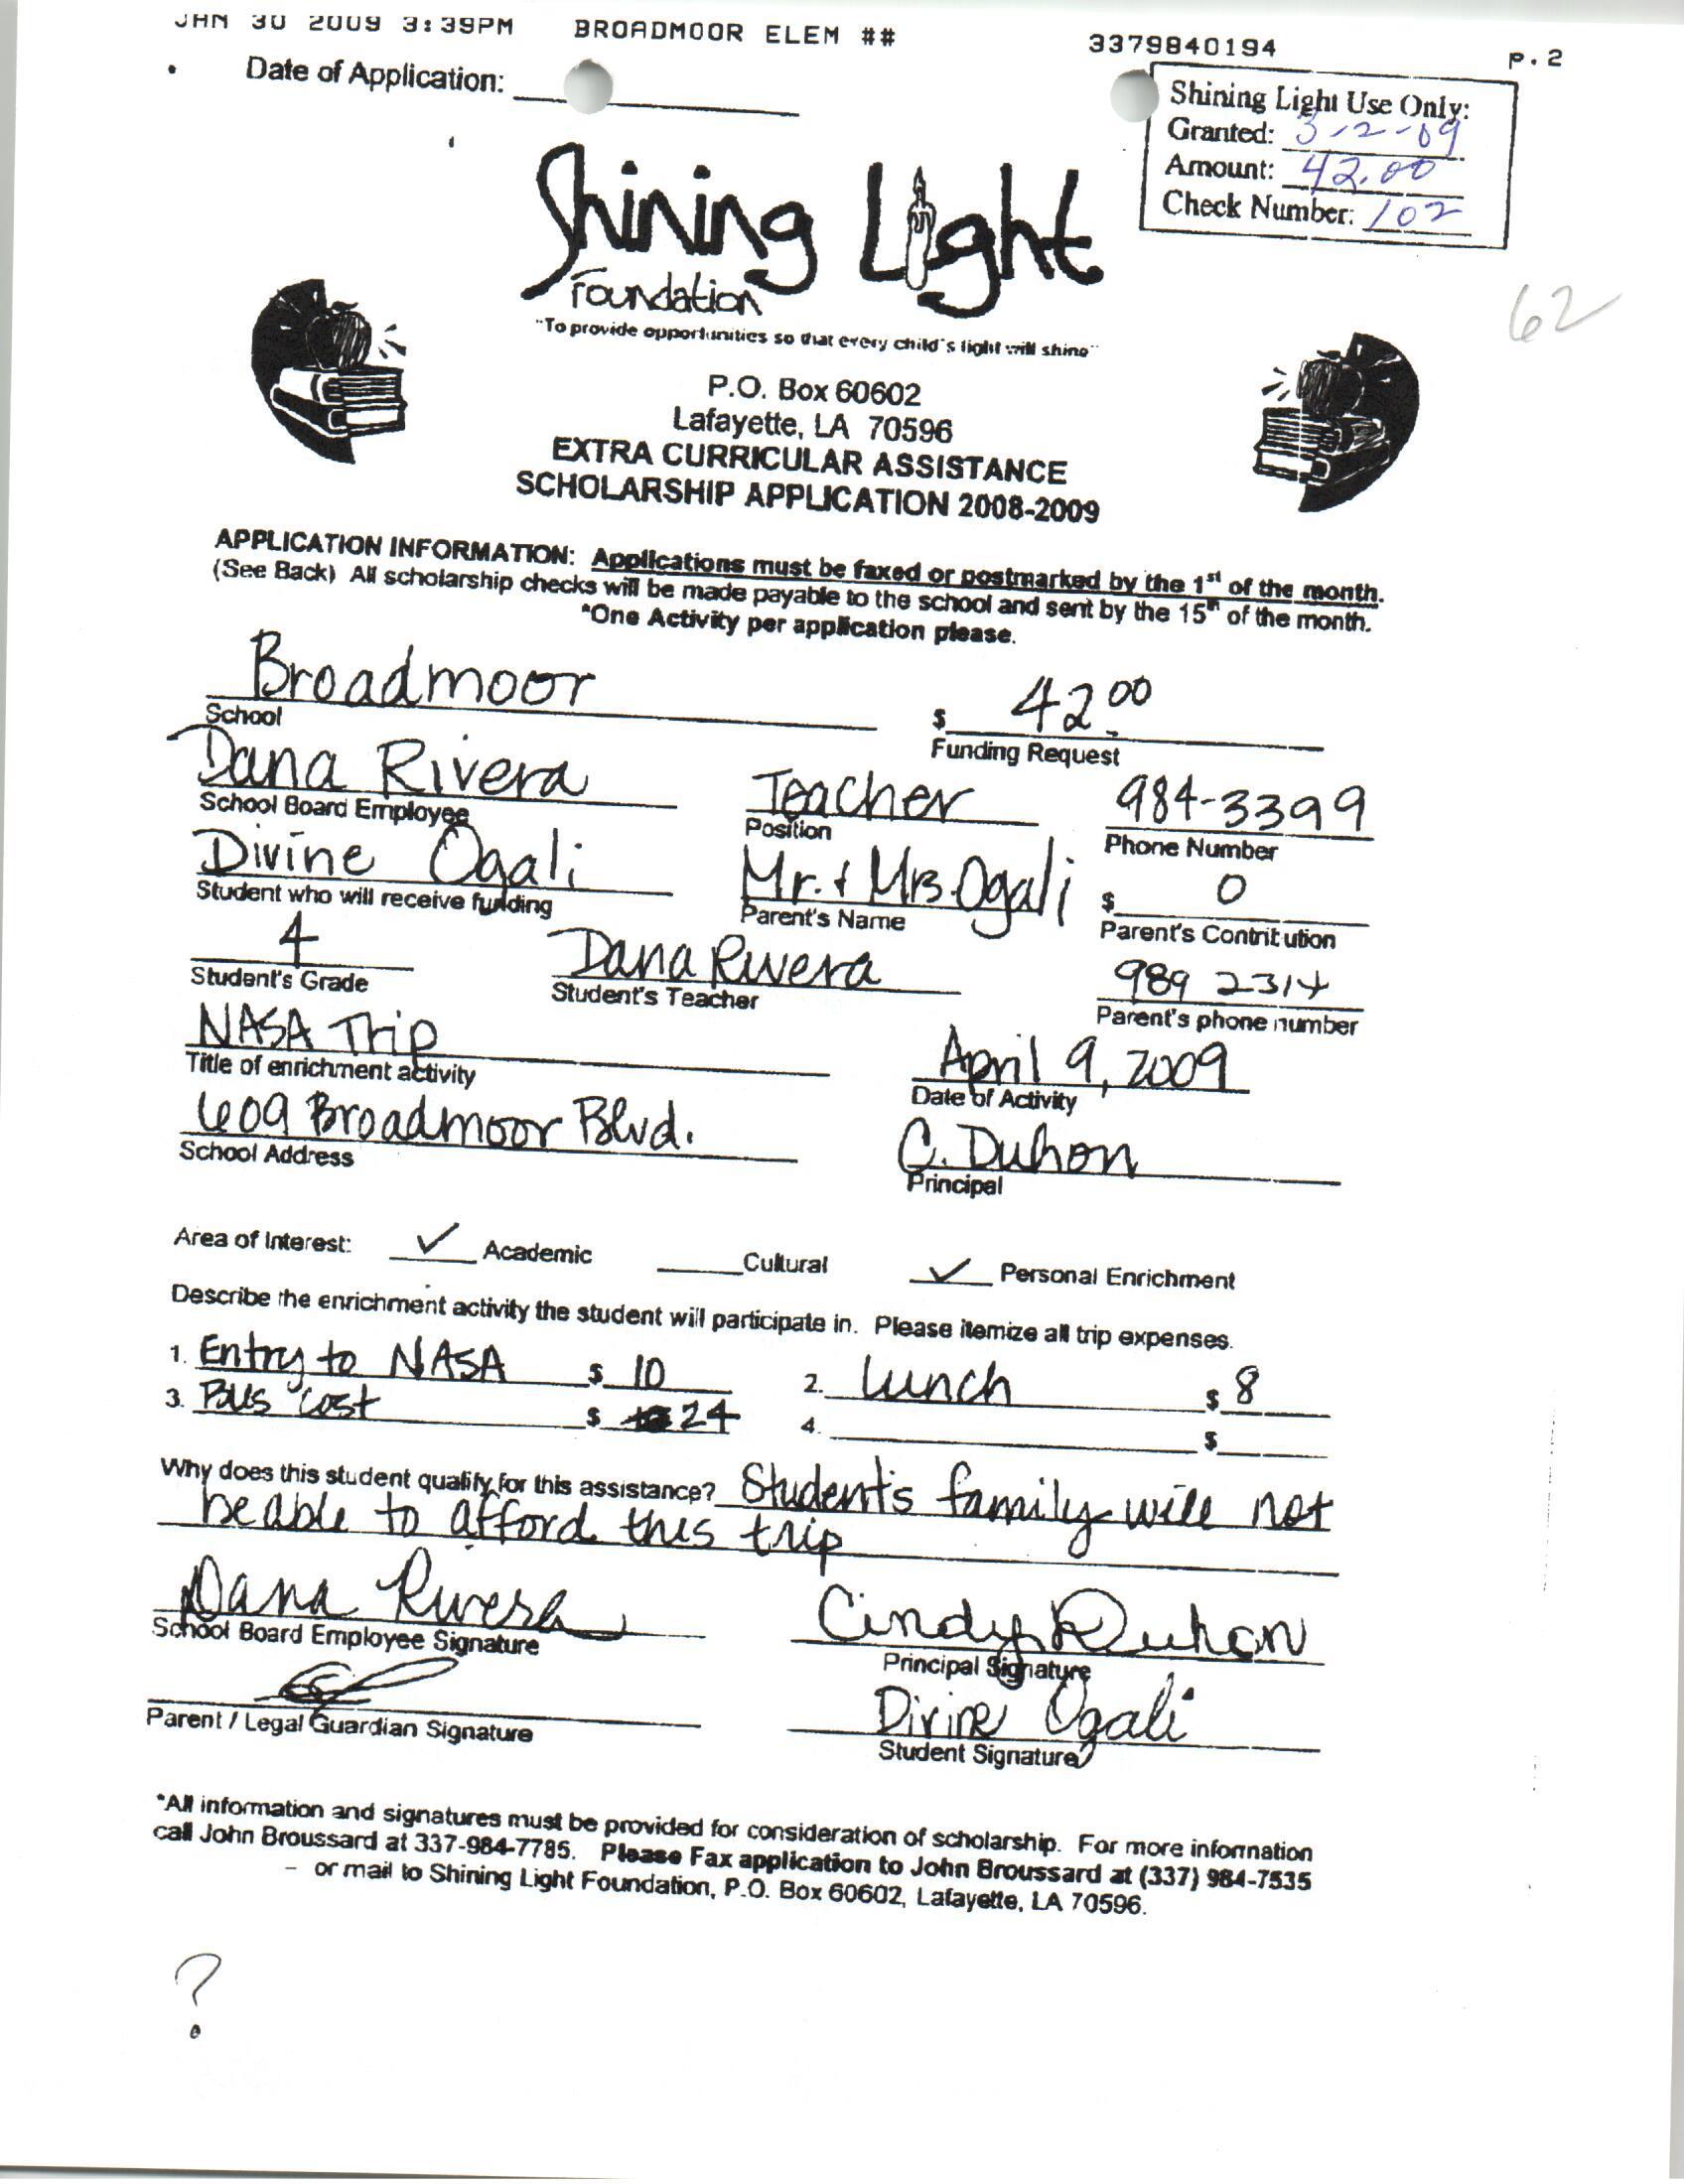 JAN 30 2009 3:39PM BROADMOOR ELEM ## 3379840194 p.2
Date of Application:
Shining Light Use Only:
Granted: 3-2-09
Amount: 42.00
Check Number: 102
Shining Light
Foundation
"To provide opportunities so that every child's light will shine"
62
P.O. Box 60602
Lafayette, LA 70596
EXTRA CURRICULAR ASSISTANCE
SCHOLARSHIP APPLICATION 2008-2009
APPLICATION INFORMATION: Applications must be faxed or postmarked by the 1st of the month.
(See Back) All scholarship checks will be made payable to the school and sent by the 15th of the month.
*One Activity per application please.
Broadmoor $ 42.00
School Funding Request
Dana Rivera Teacher 984-3399
School Board Employee Position Phone Number
Divine Ogali Mr. & Mrs. Ogali $ 0
Student who will receive funding Parent's Name Parent's Contribution
4 Dana Rivera 989 2314
Student's Grade Student's Teacher Parent's phone number
NASA Trip April 9, 2009
Title of enrichment activity Date of Activity
609 Broadmoor Blvd. C. Duhon
School Address Principal
Area of Interest: ✓ Academic Cultural ✓ Personal Enrichment
Describe the enrichment activity the student will participate in. Please itemize all trip expenses.
1. Entry to NASA $ 10 2. Lunch $ 8
3. Bus cost $ 24 4. $
Why does this student qualify for this assistance? Student's family will not
be able to afford this trip
Dana Rivera Cindy Duhon
School Board Employee Signature Principal Signature
Divine Ogali
Parent / Legal Guardian Signature Student Signature
*All information and signatures must be provided for consideration of scholarship. For more information
call John Broussard at 337-984-7785. Please Fax application to John Broussard at (337) 984-7535
– or mail to Shining Light Foundation, P.O. Box 60602, Lafayette, LA 70596.
?